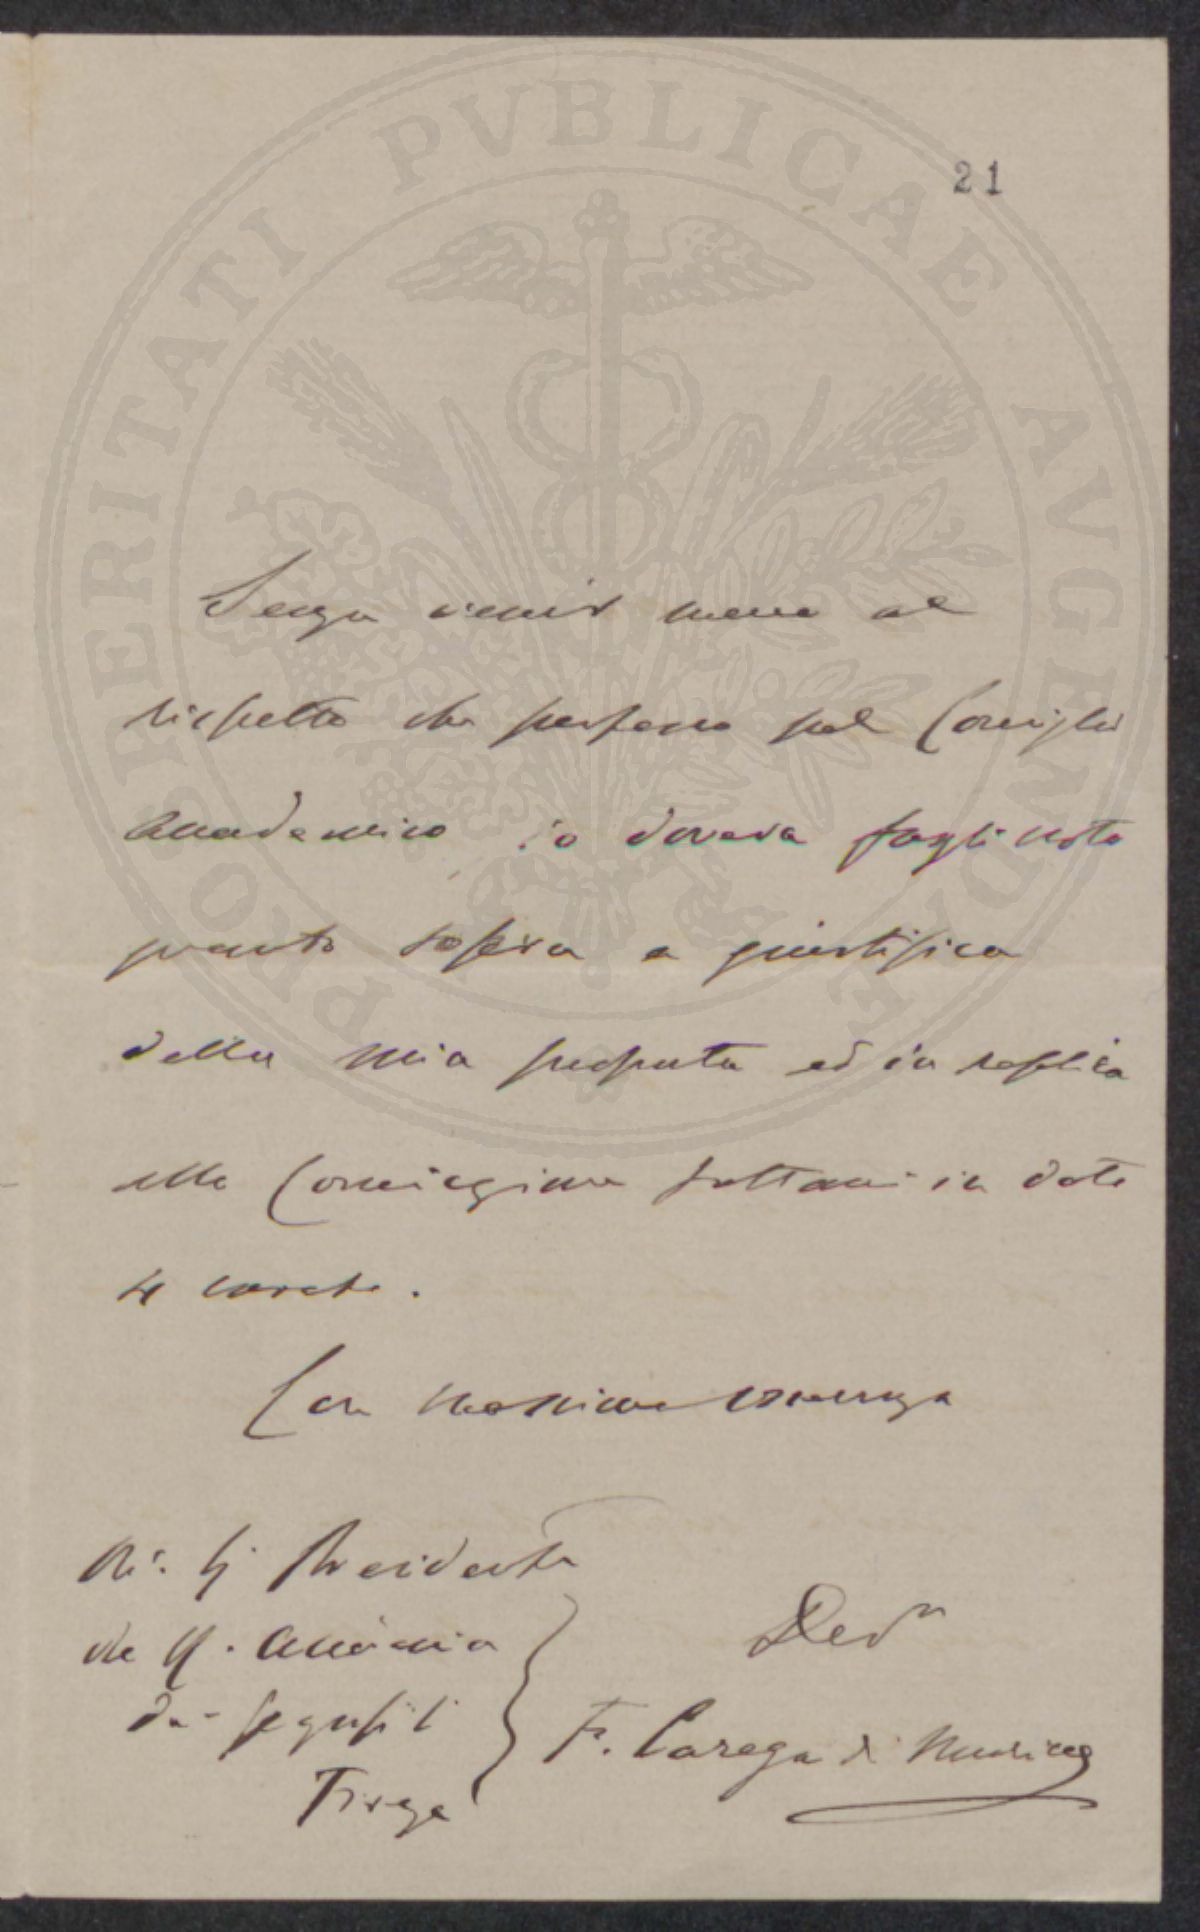 PROSPERITATI PVBLICAE AVGENDAE
21
Senza venir meno al
rispetto che professo pel Consiglio
Accademico io doveva fargli noto
quanto sopra a giustifica
della mia proposta ed in replica
alla Comunicazione fattami in data
4 corrte.
Con massima osservanza
Al Presidente
R. Accademia
dei Georgofili
Firenze
Devmo
F. Carega di Muricce